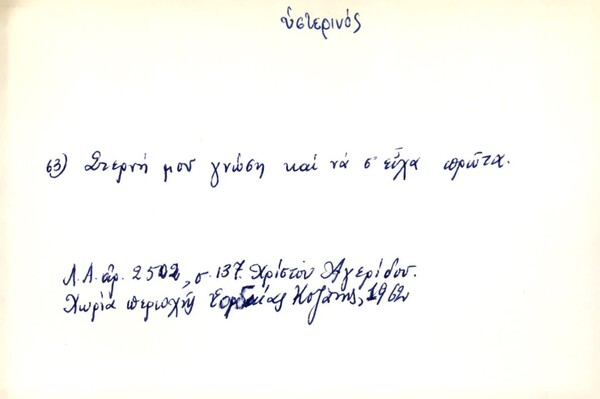 ὑστερινός
63) Στερνή μου γνώση καί νά σ' εἶχα πρῶτα.
Λ.Α. ἀρ. 2502, σ. 137. Χρίστου Ἀγερίδου.
Χωρία περιοχῆς Ἑορδαίας Κοζάνης, 1962